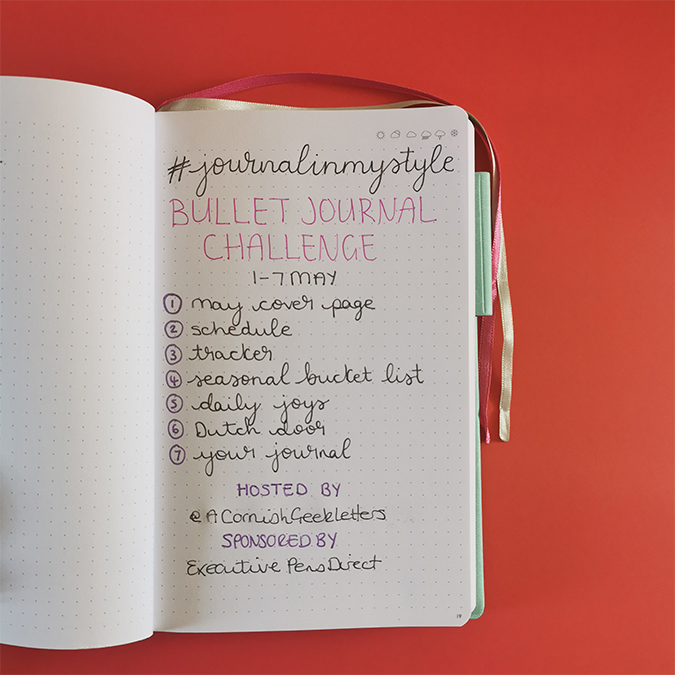 #journalinmystyle
BULLET JOURNAL
CHALLENGE
1-7 MAY
1 may cover page
2 schedule
3 tracker
4 seasonal bucket list
5 daily joys
6 Dutch door
7 your journal
HOSTED BY
@ACornishGeekLetters
SPONSORED BY
Executive Pens Direct